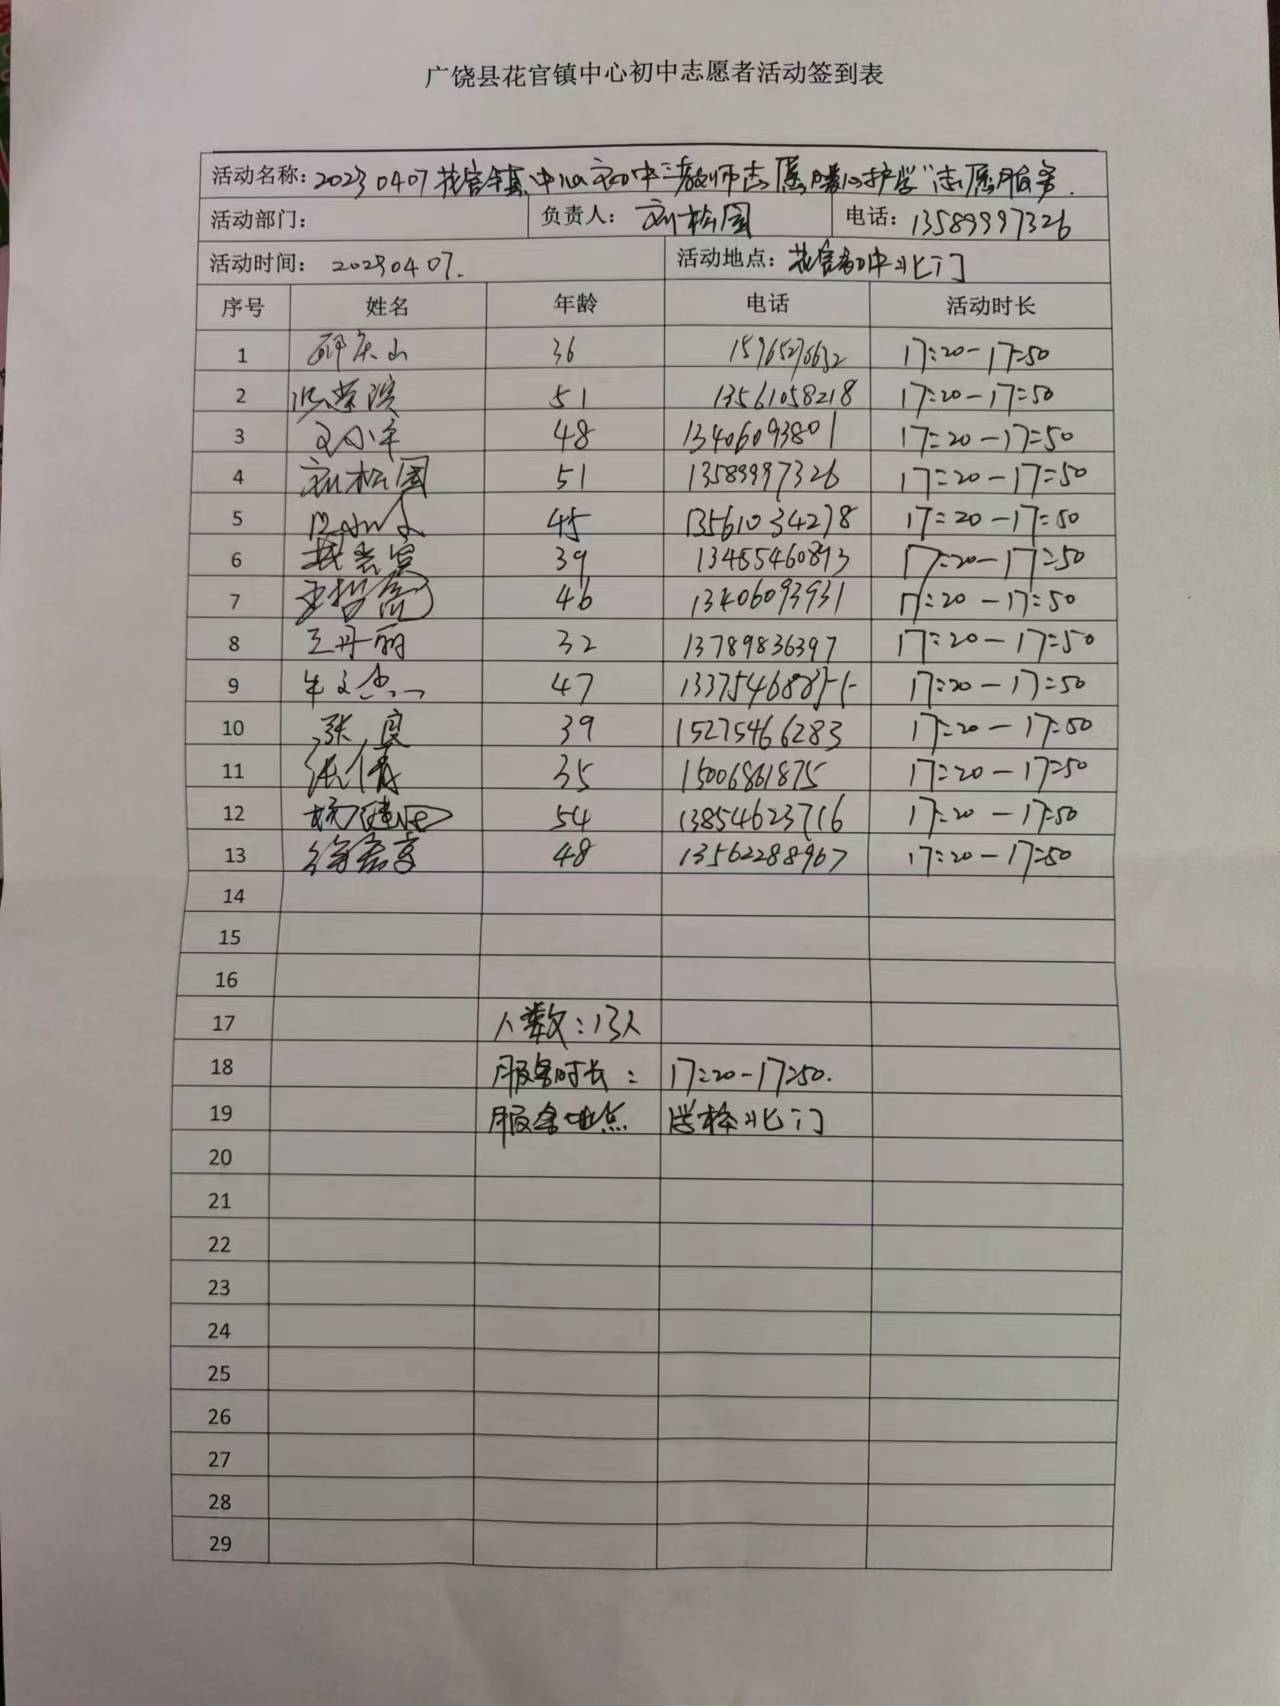 广饶县花官镇中心初中志愿者活动签到表
活动名称: 20230407花官镇中心初中"教师志愿暖心护学"志愿服务.
活动部门: 负责人: 刘松国 电话: 13589997326
活动时间: 20230407. 活动地点: 花官初中北门
序号 姓名 年龄 电话 活动时长
1 36 15965270632 17:20-17:50
2 51 13561058218 17:20-17:50
3 48 13406093801 17:20-17:50
4 刘松国 51 13589997326 17:20-17:50
5 45 13561034278 17:20-17:50
6 39 13455460893 17:20-17:50
7 46 13406093931 17:20-17:50
8 王丹丽 32 13789836397 17:20-17:50
9 47 17:20-17:50
10 张良 39 15275466283 17:20-17:50
11 张倩 35 15006861875 17:20-17:50
12 杨建国 54 13854623716 17:20-17:50
13 48 13562288967 17:20-17:50
14
15
16
17 人数:13人
18 服务时长: 17:20-17:50.
19 服务地点 学校北门
20
21
22
23
24
25
26
27
28
29